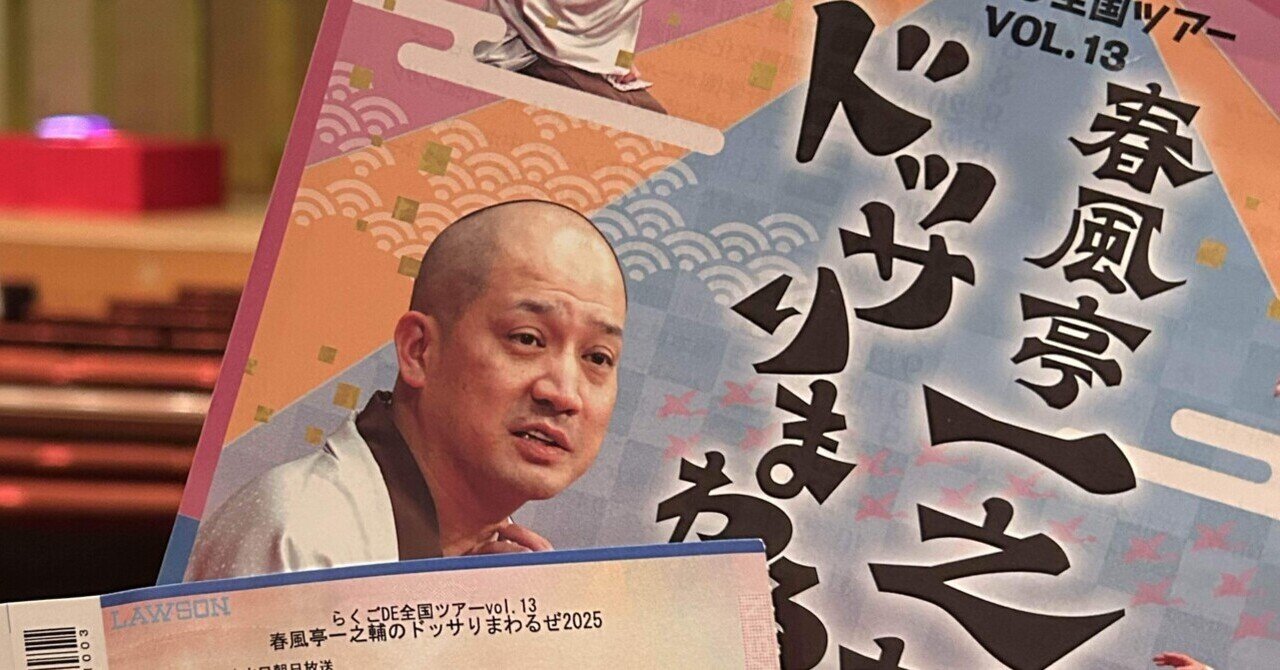 全国ツアー
VOL.13
春風亭一之
ドッサりまわる
LAWSON
らくごDE全国ツアーvol.13
春風亭一之輔のドッサりまわるぜ2025
朝日放送
1003